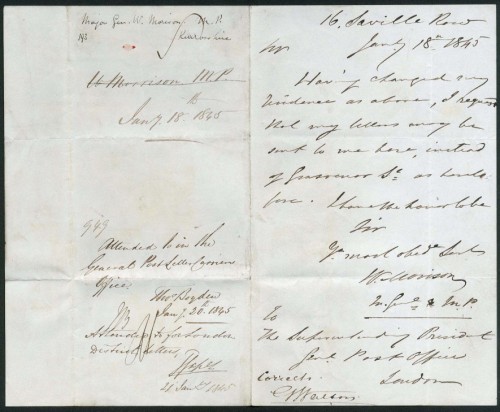 Major Genl. W. Morison
M.P.
W Morrison M.P.
Jany 18th 1845
949
Attended to in the
General Post Letter Carriers
Office.
Thos Boyden
Jany 20th 1845
Attended to for London
District Letters,
21 Jany 1845
16, Saville Row
Jany 18th 1845
Sir
Having changed my
residence as above, I request
that my letters may be
sent to me here, instead
of Grosvenor St. as hereto
fore.
I have the honor to be
Sir
Yr most obedt Servt
W. Morison
M. Genl & M.P.
To
The Superintendg President
Genl Post Office
London
Correct.